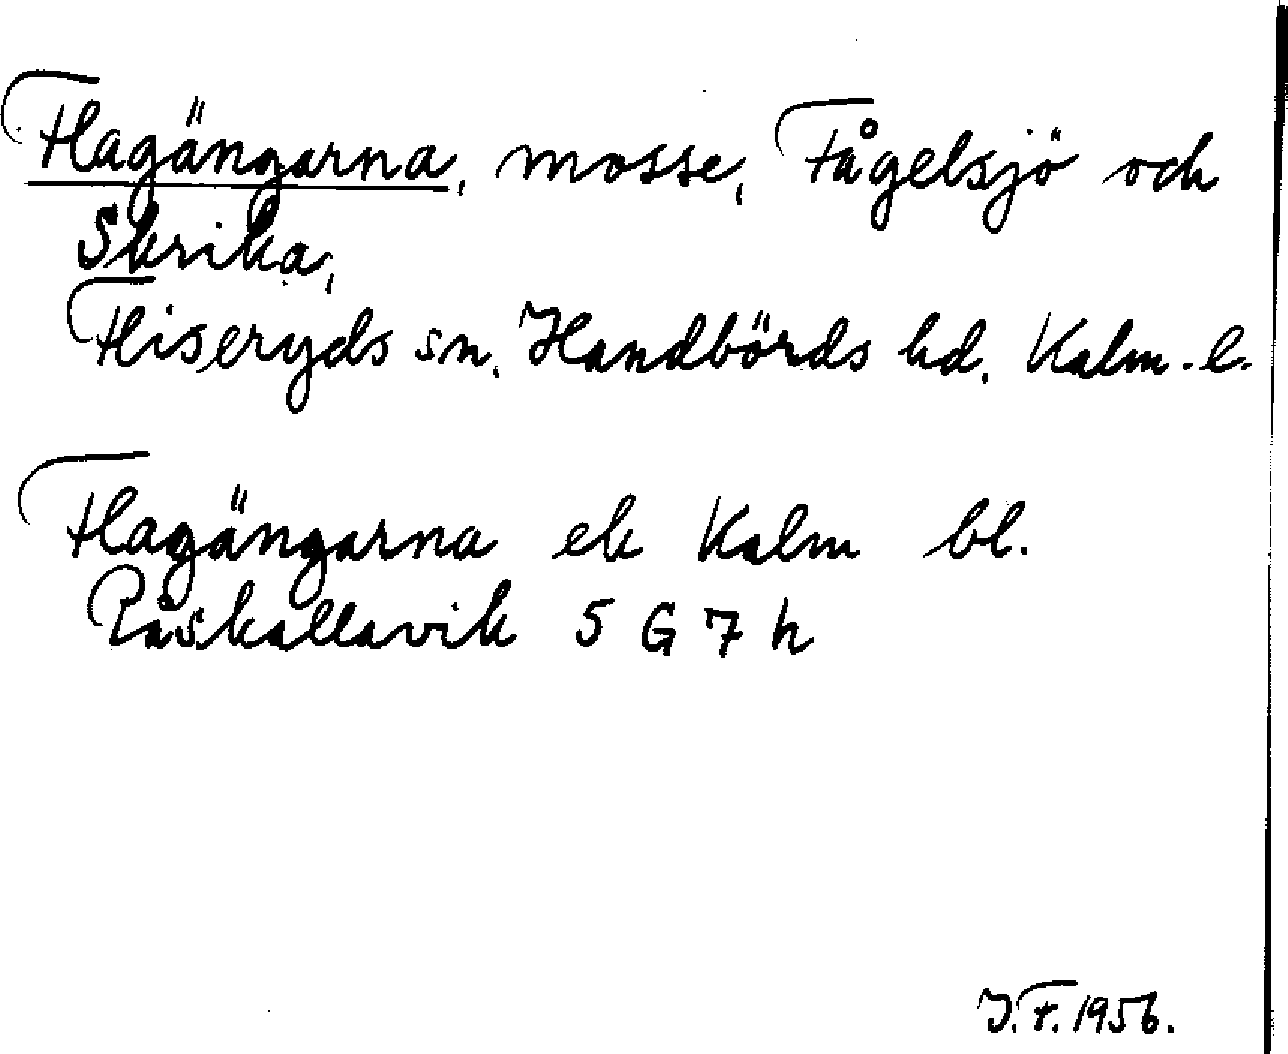 Flagängarna, mosse, Fågelsjö och
Skrika,
Fliseryds sn, Handbörds hd, Kalm. l.
Flagängarna ek Kalm bl.
Påskallavik 5 G 7 h
I.F. 1956.